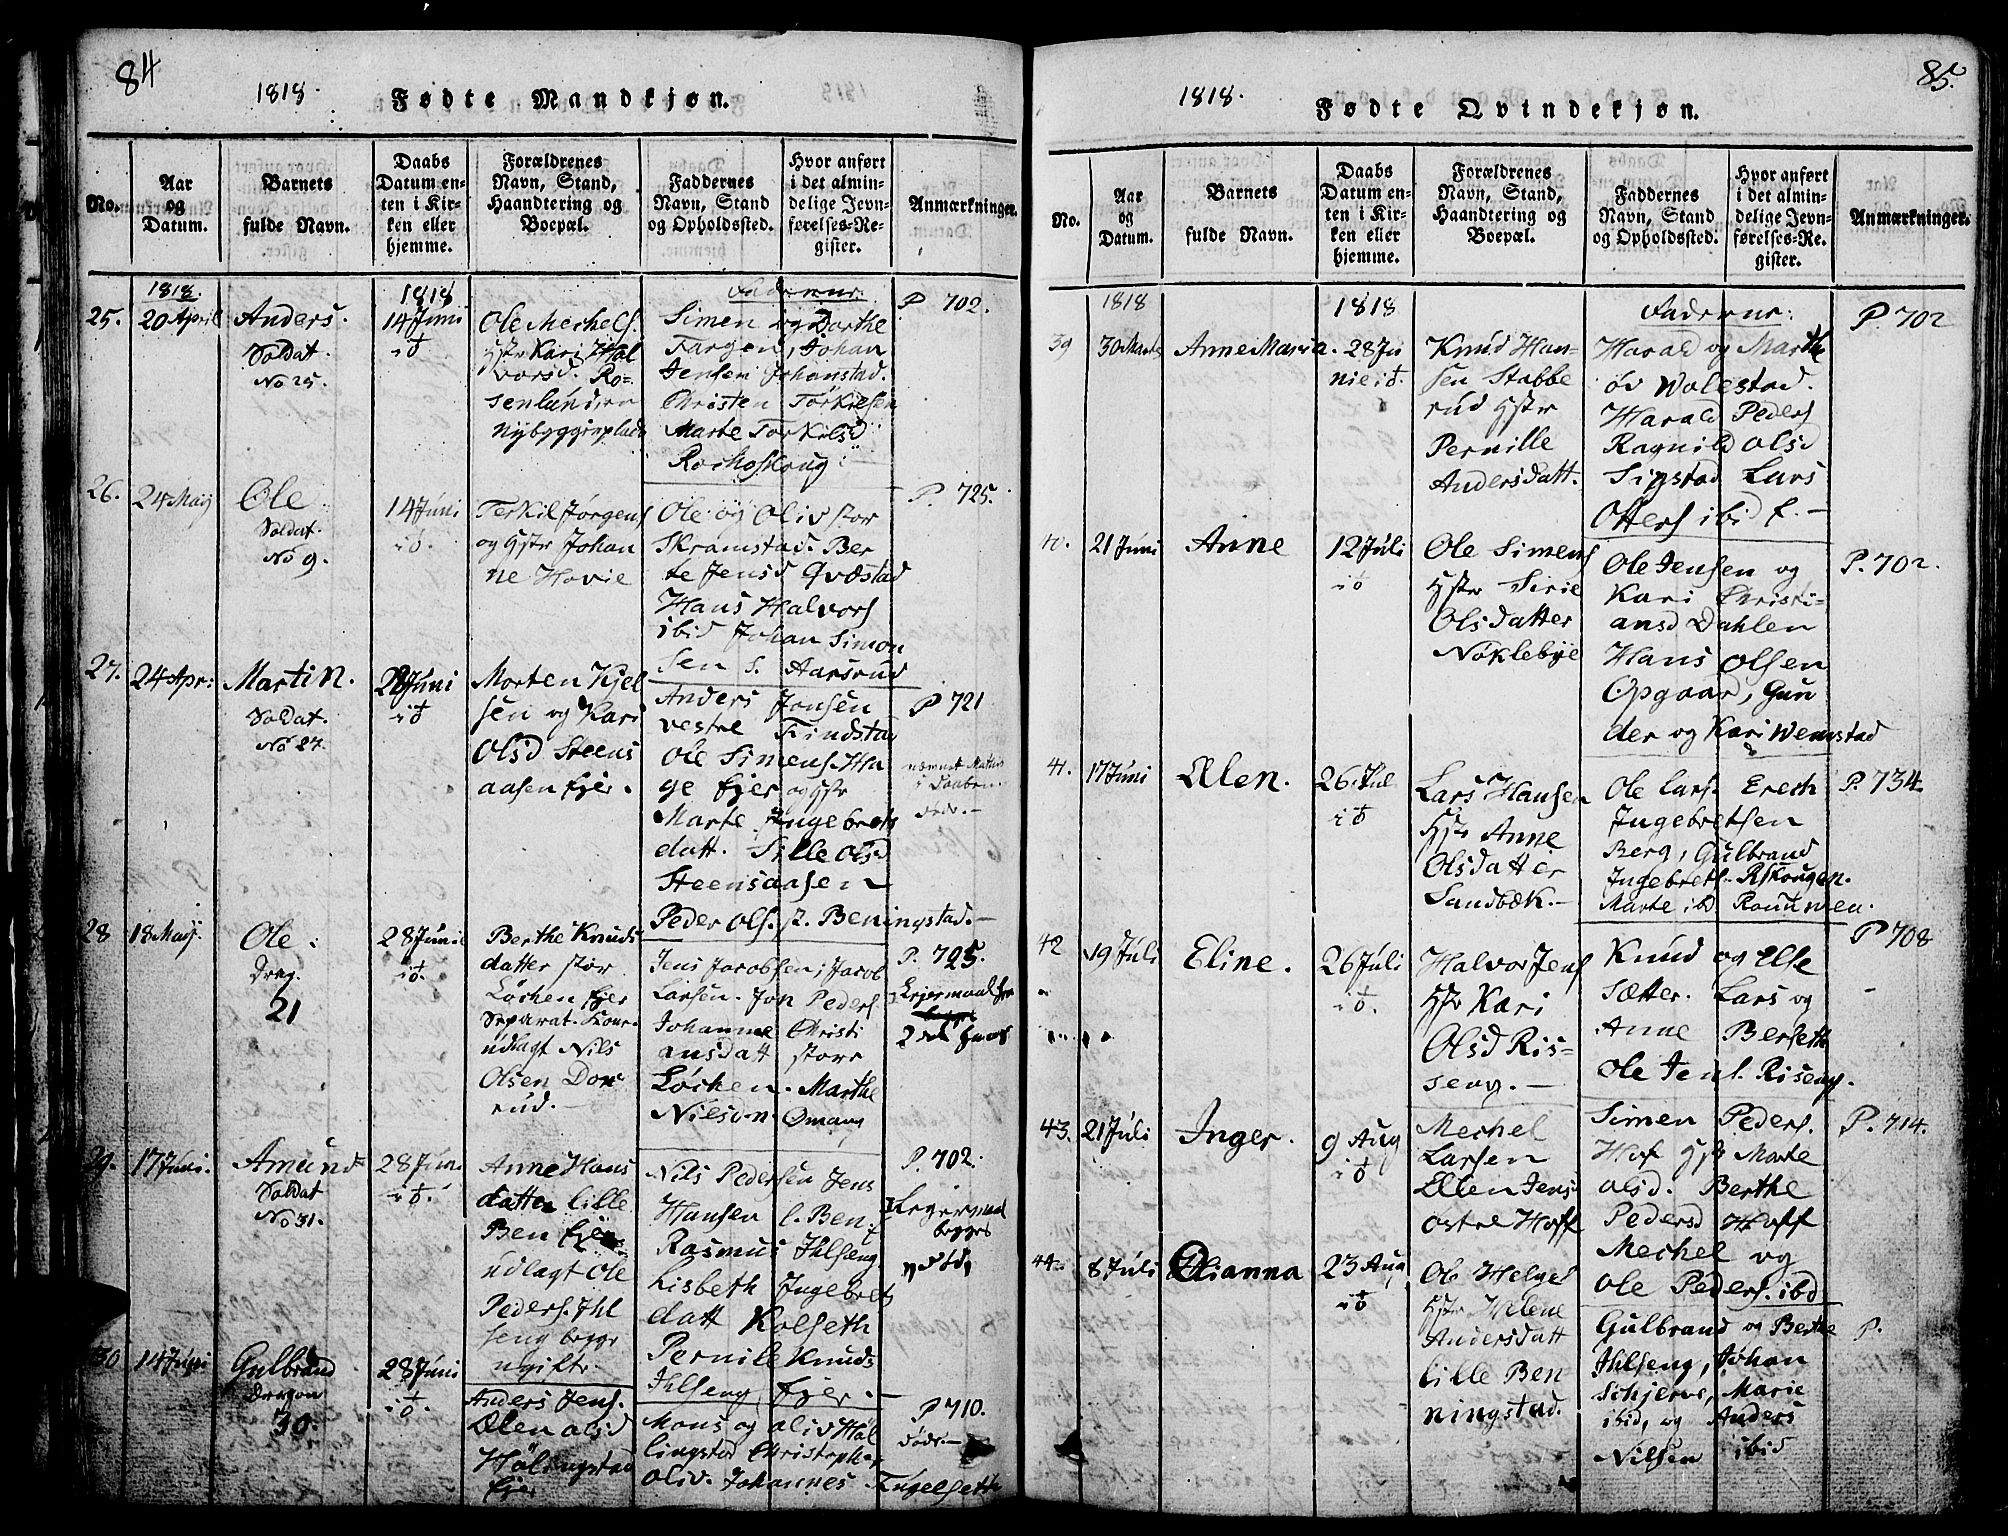 84
1818.
Fødte Mandkjøn.
No.
Aar
og
Datum.
Barnets
fulde Navn.
Daabs
Datum en-
ten i Kir-
ken eller
hjemme.
Forældrenes
Navn, Stand,
Haandtering og
Boepæl.
Faddernes
Navn, Stand
og Opholdssted.
Hvor anført
i det almin-
delige Jevn-
førelses-Re-
gister.
Anmærkninger.
1818.
25.
20 April
Anders.
Soldat.
No 25.
1818
14 Juni
Ole Mechels.
Hstr Kari Hal
vorsd. Ro-
senlund en
nybyggerplads
Fadderne:
Simen og Dorthe
Targen, Johan
Jensen Johanstad.
Christen Torkilsen
Marte Torkilsd
P 702.
26.
24 May
Ole
Soldat
No 9.
14 Juni
Terkil Jørgens
og Hstr Johan
ne Hovie
Ole og Oliv stor
Skramstad. Ber
te Jensd Qvæstad
Hans Halvors
ibid Johan Simon
sen s. Aarsrud
P. 725.
27.
24 Apr:
Martin.
Soldat.
No 27.
28 Juni
Morten Kjel
sen og Kari
Olsd Steens
aasen Ejer.
Anders Jonsen
vestre Findstad
Ole Simens. Ha
ge Ejer og Hstr
Marte Ingebrets
datt. Sille Olsd
Steensaasen
Peder Ols. st. Beningstad.
P 721
28
18 May.
Ole.
Drag.
21
28 Juni
Berthe Knuds
datter stor
Løchen Ejer
Separat. Kone
udlagt Nils
Olsen Dor
rud.
Jens Jacobsen, Jacob
Larsen. Jon Peders
Johanne Christi
ansdatt store
Løchen. Marthe
Nilson. Omang
P. 725.
Lejermaal for
29.
17 Juni.
Amund
Soldat
No 31.
28 Juni
Anne Hans
datter lille
Ben Ejer
udlagt Ole
Peders. Ihl
seng begge
ugifte.
Nils Pedersen Jens
Hansen l. Ben
Rasmus Ihlseng
Lisbeth Ingebrets
datt Kolseth
Pernille Knuds
Ihlseng Ejer.
P. 702.
Lejermaal
begges
30
14 Juni
Gulbrand
Dragon
30.
28 Juni
Anders Jens.
Ælen Olsd
Hølingstad
Ejer
Mons og Oliv Høl
lingstad Christopher
Oliv. Johannes Fugelseth
P 710.
Døde
85.
1818.
Fødte Qvindekjøn.
No.
Aar
og
Datum.
Barnets
fulde Navn.
Daabs
Datum en-
ten i Kir-
ken eller
hjemme.
Forældrenes
Navn, Stand,
Haandtering og
Boepæl.
Faddernes
Navn, Stand
og Opholdssted.
Hvor anført
i det almin-
delige Jevn-
førelses-Re-
gister.
Anmærkninger.
1818
39
30 Marts
Anne Maria.
1818
28 Ju
nie
Knud Han-
sen Stabbe
rud Hstr
Pernille
Andersdatt.
Fadderne:
Harald og Marthe
øv Wolestad.
Harald Peders
Ragnild Olsd
Sigstad Lars
Otters ibid E.
P. 702
40.
21 Juni
Anne
12 Juli
Ole Simens
Hstr Sirie
Olsdatter
Nøklebye
Ole Jensen og
Kari Christi-
ansd Dahlen
Hans Olsen
Opgaard, Gun
der og Kari Wemstad
P. 702.
41.
17 Juni
Ælen.
26 Jul
Lars Hansen
Hstr Anne
Olsdatter
Sandbæk.
Ole Lars. Erech
Ingebretsen
Berg, Gulbrand
Ingebrets. Rskougen.
Marte ibd Rommen.
P. 734
42
19 Juli
Eline.
26 Juli
Halvor Jens
Hstr Kari
Olsd Ris-
seng.
Knud og Else
Sætter. Lars og
Anne Berseth
Ole Jens. Riseng.
P 708
43.
21 Juli
Inger.
9 Aug
Mechel
Larsen
Ellen Jensd
østre Hoff
Simen Peders.
Hof Hstr Marte
Olsd. Berthe
Pedersd Hoff
Mechel og
Ole Peders. ibd
P. 714.
44.
8 Juli
Olianna
23 Aug
Ole Helges
Hstr Helene
Andersdatt
lille Ben
ningstad.
Gulbrand og Berthe
Ihlseng, Johan
Schjerve, Marie
ibid, og Anders
Nilsen ibid
P.